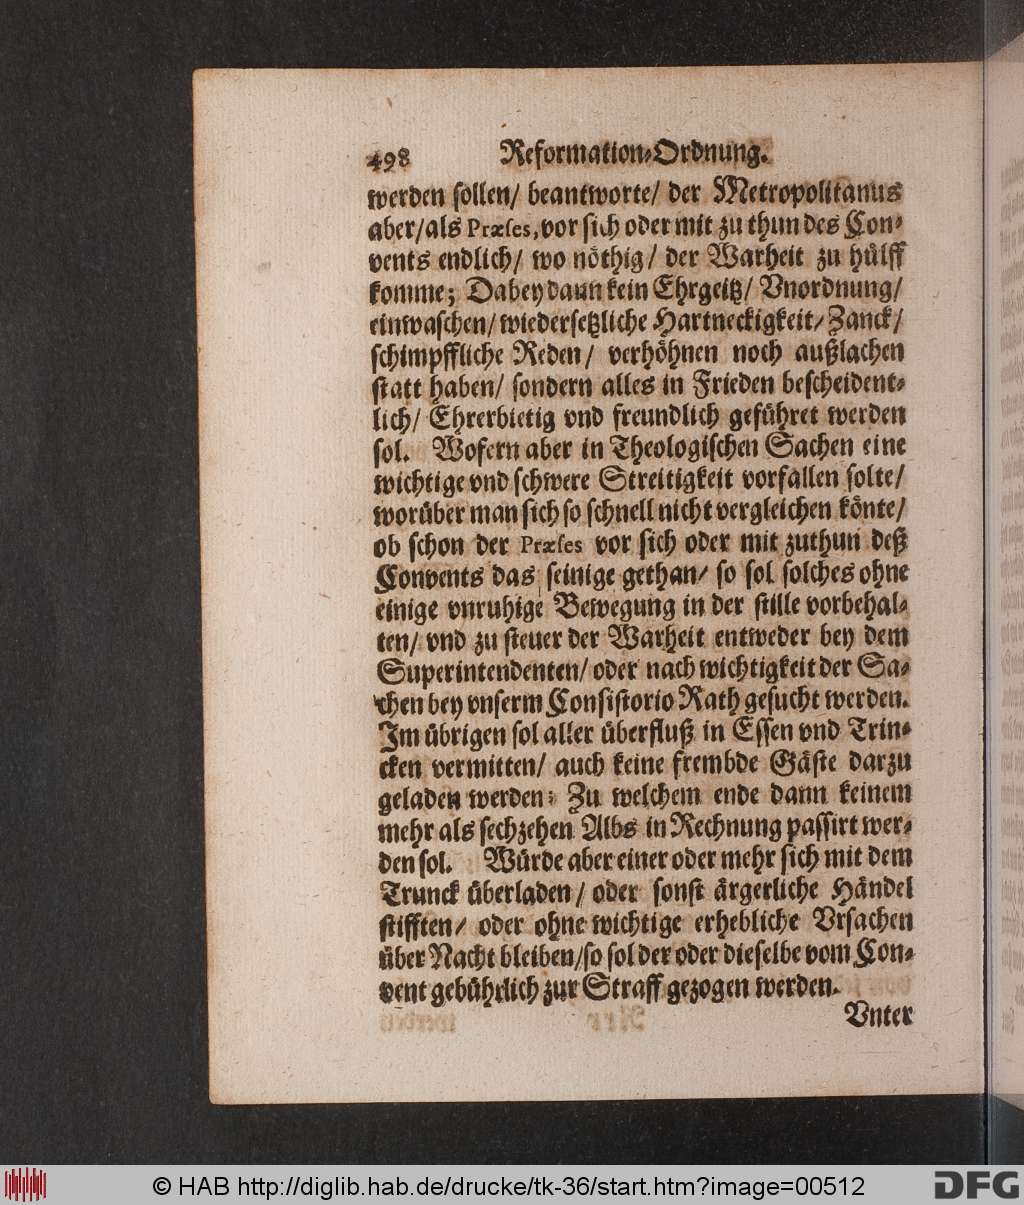 498 Reformation-Ordnung.
werden sollen/ beantworte/ der Metropolitanus
aber/als Præses, vor sich oder mit zu thun des Con-
vents endlich/ wo nöthig/ der Warheit zu hülff
komme; Dabey dann kein Ehrgeitz/ Vnordnung/
einwaschen/ wiedersetzliche Hartneckigkeit/ Zanck/
schimpffliche Reden/ verhöhnen noch außlachen
statt haben/ sondern alles in Frieden bescheident-
lich/ Ehrerbietig vnd freundlich geführet werden
sol. Wofern aber in Theologischen Sachen eine
wichtige vnd schwere Streitigkeit vorfallen solte/
worüber man sich so schnell nicht vergleichen könte/
ob schon der Præses vor sich oder mit zuthun deß
Convents das seinige gethan/ so sol solches ohne
einige vnruhige Bewegung in der stille vorbehal-
ten/ vnd zu steuer der Warheit entweder bey dem
Superintendenten/ oder nach wichtigkeit der Sa-
chen bey vnserm Consistorio Rath gesucht werden.
Im übrigen sol aller überfluß in Essen vnd Trin-
cken vermitten/ auch keine frembde Gäste darzu
geladen werden; Zu welchem ende dann keinem
mehr als sechzehen Albs in Rechnung passirt wer-
den sol. Würde aber einer oder mehr sich mit dem
Trunck überladen/ oder sonst ärgerliche Händel
stifften/ oder ohne wichtige erhebliche Vrsachen
über Nacht bleiben/so sol der oder dieselbe vom Con-
vent gebührlich zur Straff gezogen werden.
Vnter
© HAB http://diglib.hab.de/drucke/tk-36/start.htm?image=00512
DFG